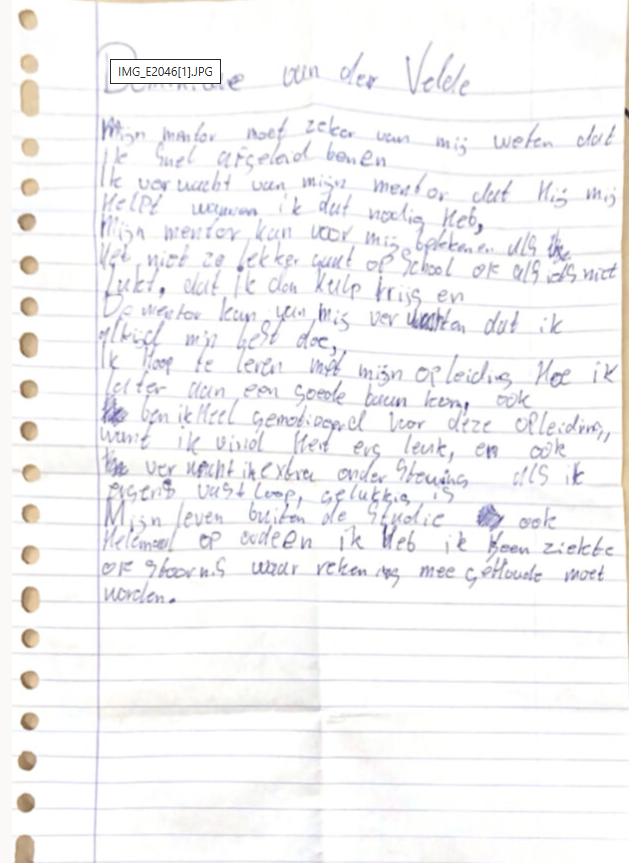 IMG_E2046[1].JPG
van der Velde
Mijn mentor moet zeker van mij weten dat
Ik snel afgeleid benen
Ik verwacht van mijn mentor dat Hij mij
Helpt wanneer ik dat nodig Heb,
Mijn mentor kan voor mij betekenen als
Het niet zo lekker gaat op school of als iets niet
Lukt, dat ik dan Hulp krijg en
De mentor kan van mij verwachten dat ik
altijd mijn best doe,
Ik Hoop te leren met mijn opleiding Hoe ik
later aan een goede baan kom, ook
ben ik Heel gemotiveerd voor deze opleiding,
want ik vind Het erg leuk, en ook
verwacht ik extra ondersteuning als ik
ergens vast loop, gelukkig is
Mijn leven buiten de Studie ook
Helemaal op en ik Heb ik geen ziekte
of stoornis waar rekening mee geHoude moet
worden.